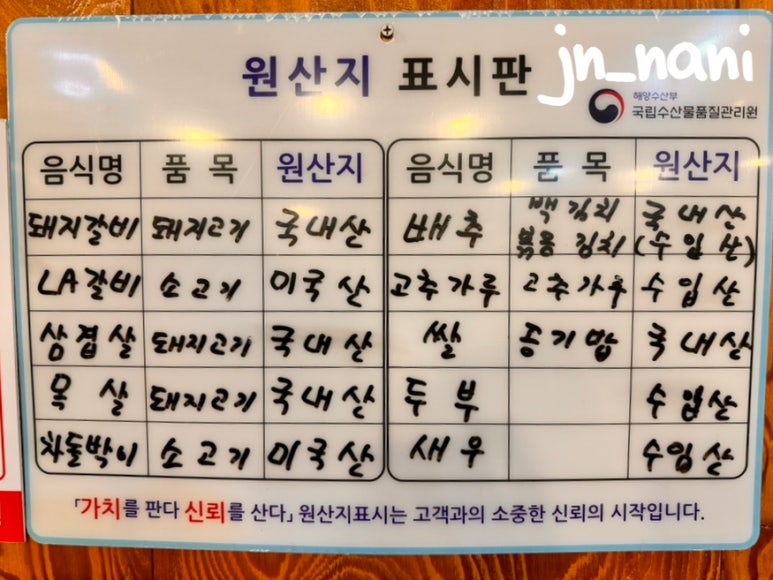 원산지 표시판
jn_nani
해양수산부
국립수산물품질관리원
음식명 품 목 원산지 음식명 품 목 원산지
돼지갈비 돼지고기 국내산 배추 백김치 국내산
볶음 김치 (수입산)
LA갈비 소고기 미국산 고추가루 고추가루 수입산
삼겹살 돼지고기 국내산 쌀 공기밥 국내산
목 살 돼지고기 국내산 두부 수입산
차돌박이 소고기 미국산 새우 수입산
「가치를 판다 신뢰를 산다」 원산지표시는 고객과의 소중한 신뢰의 시작입니다.